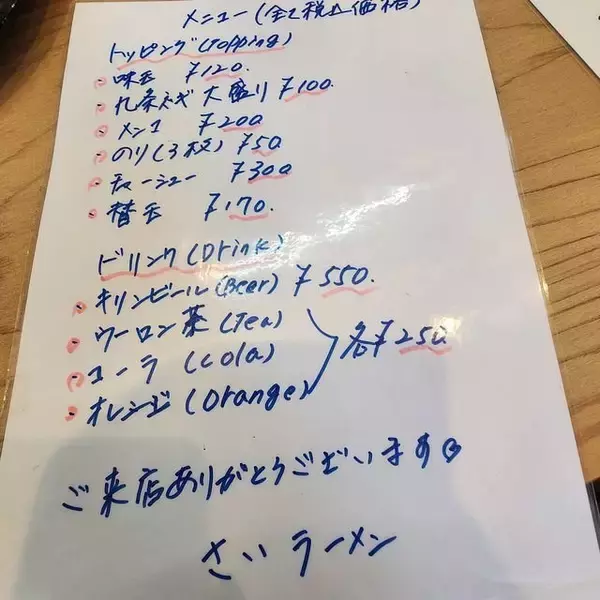 メニュー(全て税込価格)
トッピング(Topping)
味玉 ¥120.
九条ネギ大盛り ¥100.
メンマ ¥200
のり(3枚) ¥50
チャーシュー ¥300
替玉 ¥170.
ドリンク(Drink)
キリンビール(Beer) ¥550.
ウーロン茶(Tea)
コーラ(Cola) 各¥250
オレンジ(Orange)
ご来店ありがとうございます
さいラーメン